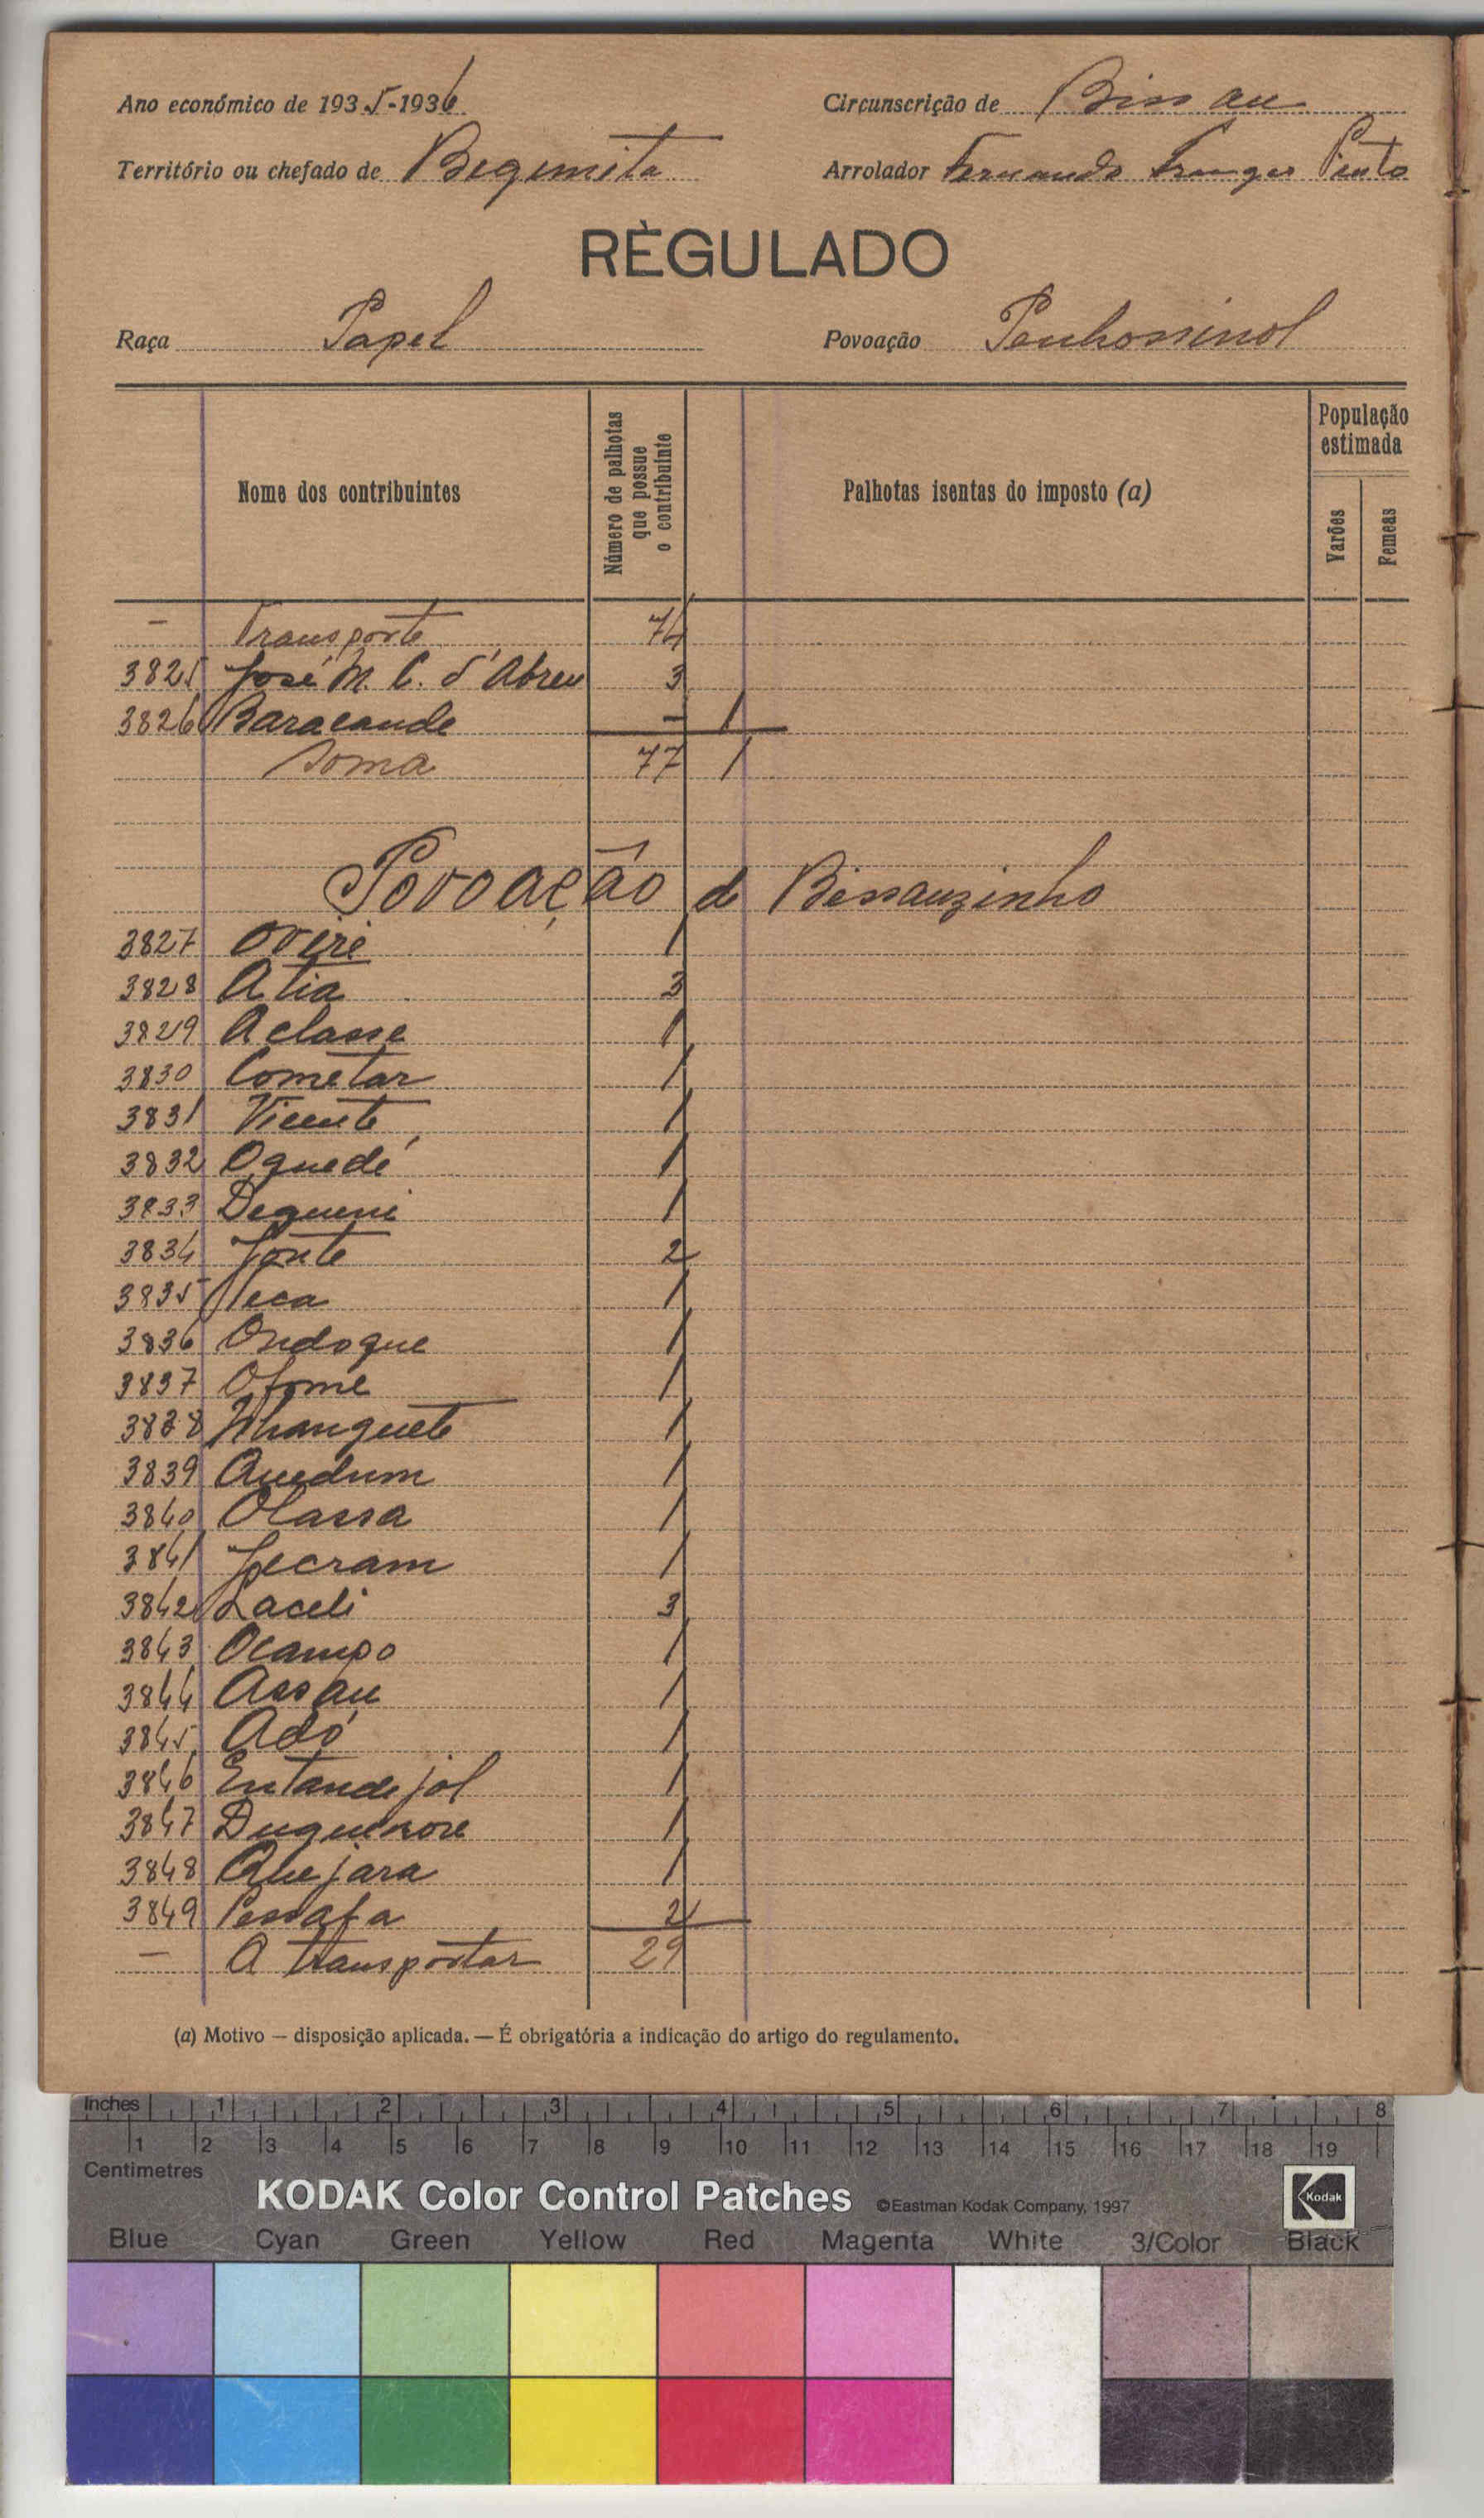 Ano económico de 1935-1936 Circunscrição de Bissau
Território ou chefado de Begemita Arrolador Fernando Pinto
RÈGULADO
Raça Papel Povoação Penhossinol
Nome dos contribuintes Número de palhotas que possue o contribuinte Palhotas isentas do imposto (a) População estimada
Varões Femeas
- Transporte 74
3825 José M. C. d'Abreu 3
3826 Baracande - 1
Soma 77 1
Povoação de Bissauzinho
3827 Overe 1
3828 Atia 3
3829 Aclasse 1
3830 Cometar 1
3831 Vicente 1
3832 Oguedé 1
3833 Degueni 1
3834 Jonte 2
3835 Teca 1
3836 Ondoque 1
3837 Ofome 1
3838 Nhanguete 1
3839 Quedum 1
3840 Olassa 1
3841 Jecram 1
3842 Laceli 3
3843 Ocampo 1
3844 Assau 1
3845 Adó 1
3846 Entandejol 1
3847 Duguenore 1
3848 Quejara 1
3849 Pessafa 2
- A transportar 29
(a) Motivo — disposição aplicada. — É obrigatória a indicação do artigo do regulamento.
Inches 1 2 3 4 5 6 7 8
1 2 3 4 5 6 7 8 9 10 11 12 13 14 15 16 17 18 19
Centimetres
KODAK Color Control Patches ©Eastman Kodak Company, 1997 Kodak
Blue Cyan Green Yellow Red Magenta White 3/Color Black